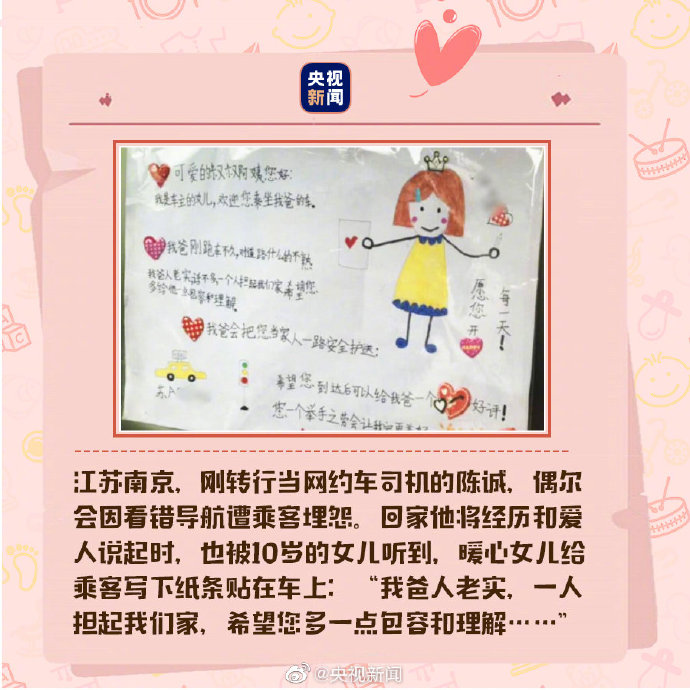 央视
新闻
可爱的叔叔阿姨您好：
我是车主的女儿，欢迎您乘坐我爸的车。
我爸刚跑车不久，对道路什么的不熟
我爸人老实话不多一个人担起我们家希望您
多给他一点包容和理解。
我爸会把您当家人一路安全护送；
愿您开
每一天！
苏
希望您到达后可以给我爸一个
好评！
您一个举手之劳会让我
江苏南京，刚转行当网约车司机的陈诚，偶尔
会因看错导航遭乘客埋怨。回家他将经历和爱
人说起时，也被10岁的女儿听到，暖心女儿给
乘客写下纸条贴在车上：“我爸人老实，一人
担起我们家，希望您多一点包容和理解……”
@央视新闻